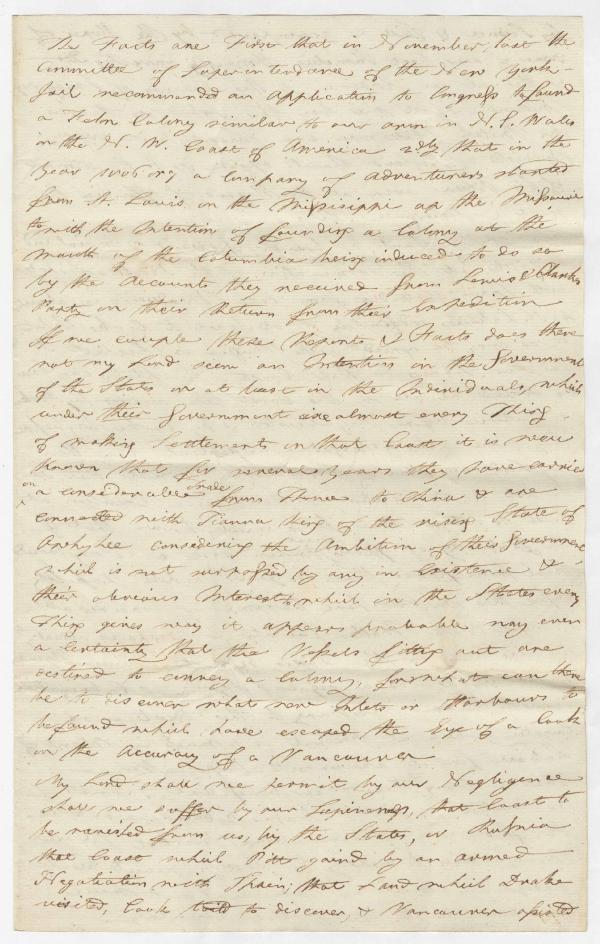 The Facts are First that in November last the
Committee of Superintendance of the New York
Jail recommended an Application to Congress to found
a Felon Colony similar to our own in N. S. Wales
in the N. W. Coast of America 2dly that in the
Year 1806 or 7 a Company of Adventurers started
from St. Louis on the Missisippi up the Missouri
with the Intention of founding a Colony at the
Mouth of the Columbia being induced to do so
by the Accounts they received from Lewis & Clarkes
Party on their Return from their Expedition
If we couple these Reports & Facts does there
not my Lord seem an Intention in the Government
of the States or at least in the Individuals, which
under their Government are almost every Thing
of making Settlements on that Coast it is now
known that for several Years they have carried
on a considerable Trade from Thence to China & are
connected with Tianna King of the rising State of
Owhyhee considering the Ambition of their Government
which is not surpassed by any in Existence &
their obvious Interest to which in the States every
Thing gives way it appears probable nay even
a certainty that the Vessels fitting out are
destined to convey a Colony, for what can there
be to discover what new Inlets or Harbours to
be found which have escaped the Eye of a Cook
or the Accuracy of a Vancouver
My Lord shall we permit by our Negligence
shall we suffer by our Supineness, that Coast to
be ravished from us, by the States, or Russia
that Coast which Pitt gaind by an armed
Negotiation with Spain; that Land which Drake
visited, Cook to discover, & Vancouver